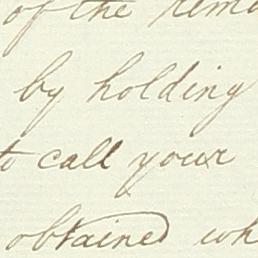 of the rem
by holding
to call your
obtained wh